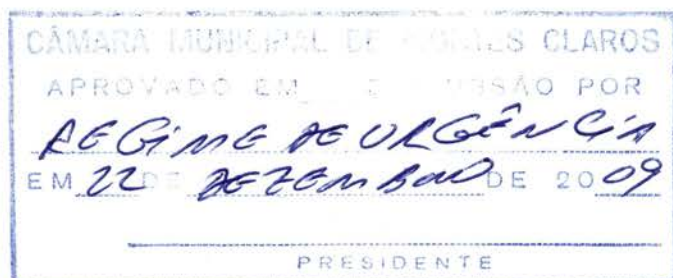 CÂMARA MUNICIPAL DE MONTES CLAROS
APROVADO EM DISCUSSÃO POR
REGIME DE URGÊNCIA
EM 22 DE DEZEMBRO DE 2009
PRESIDENTE